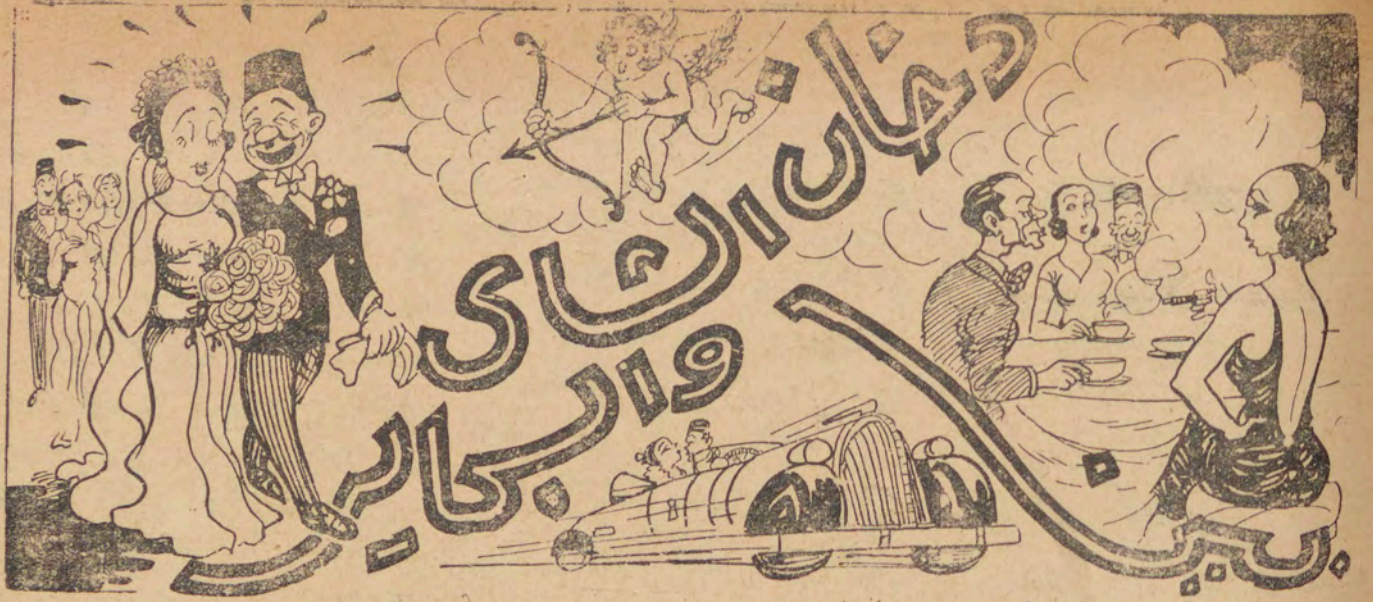 بين
دخان الشاى
والسجاير